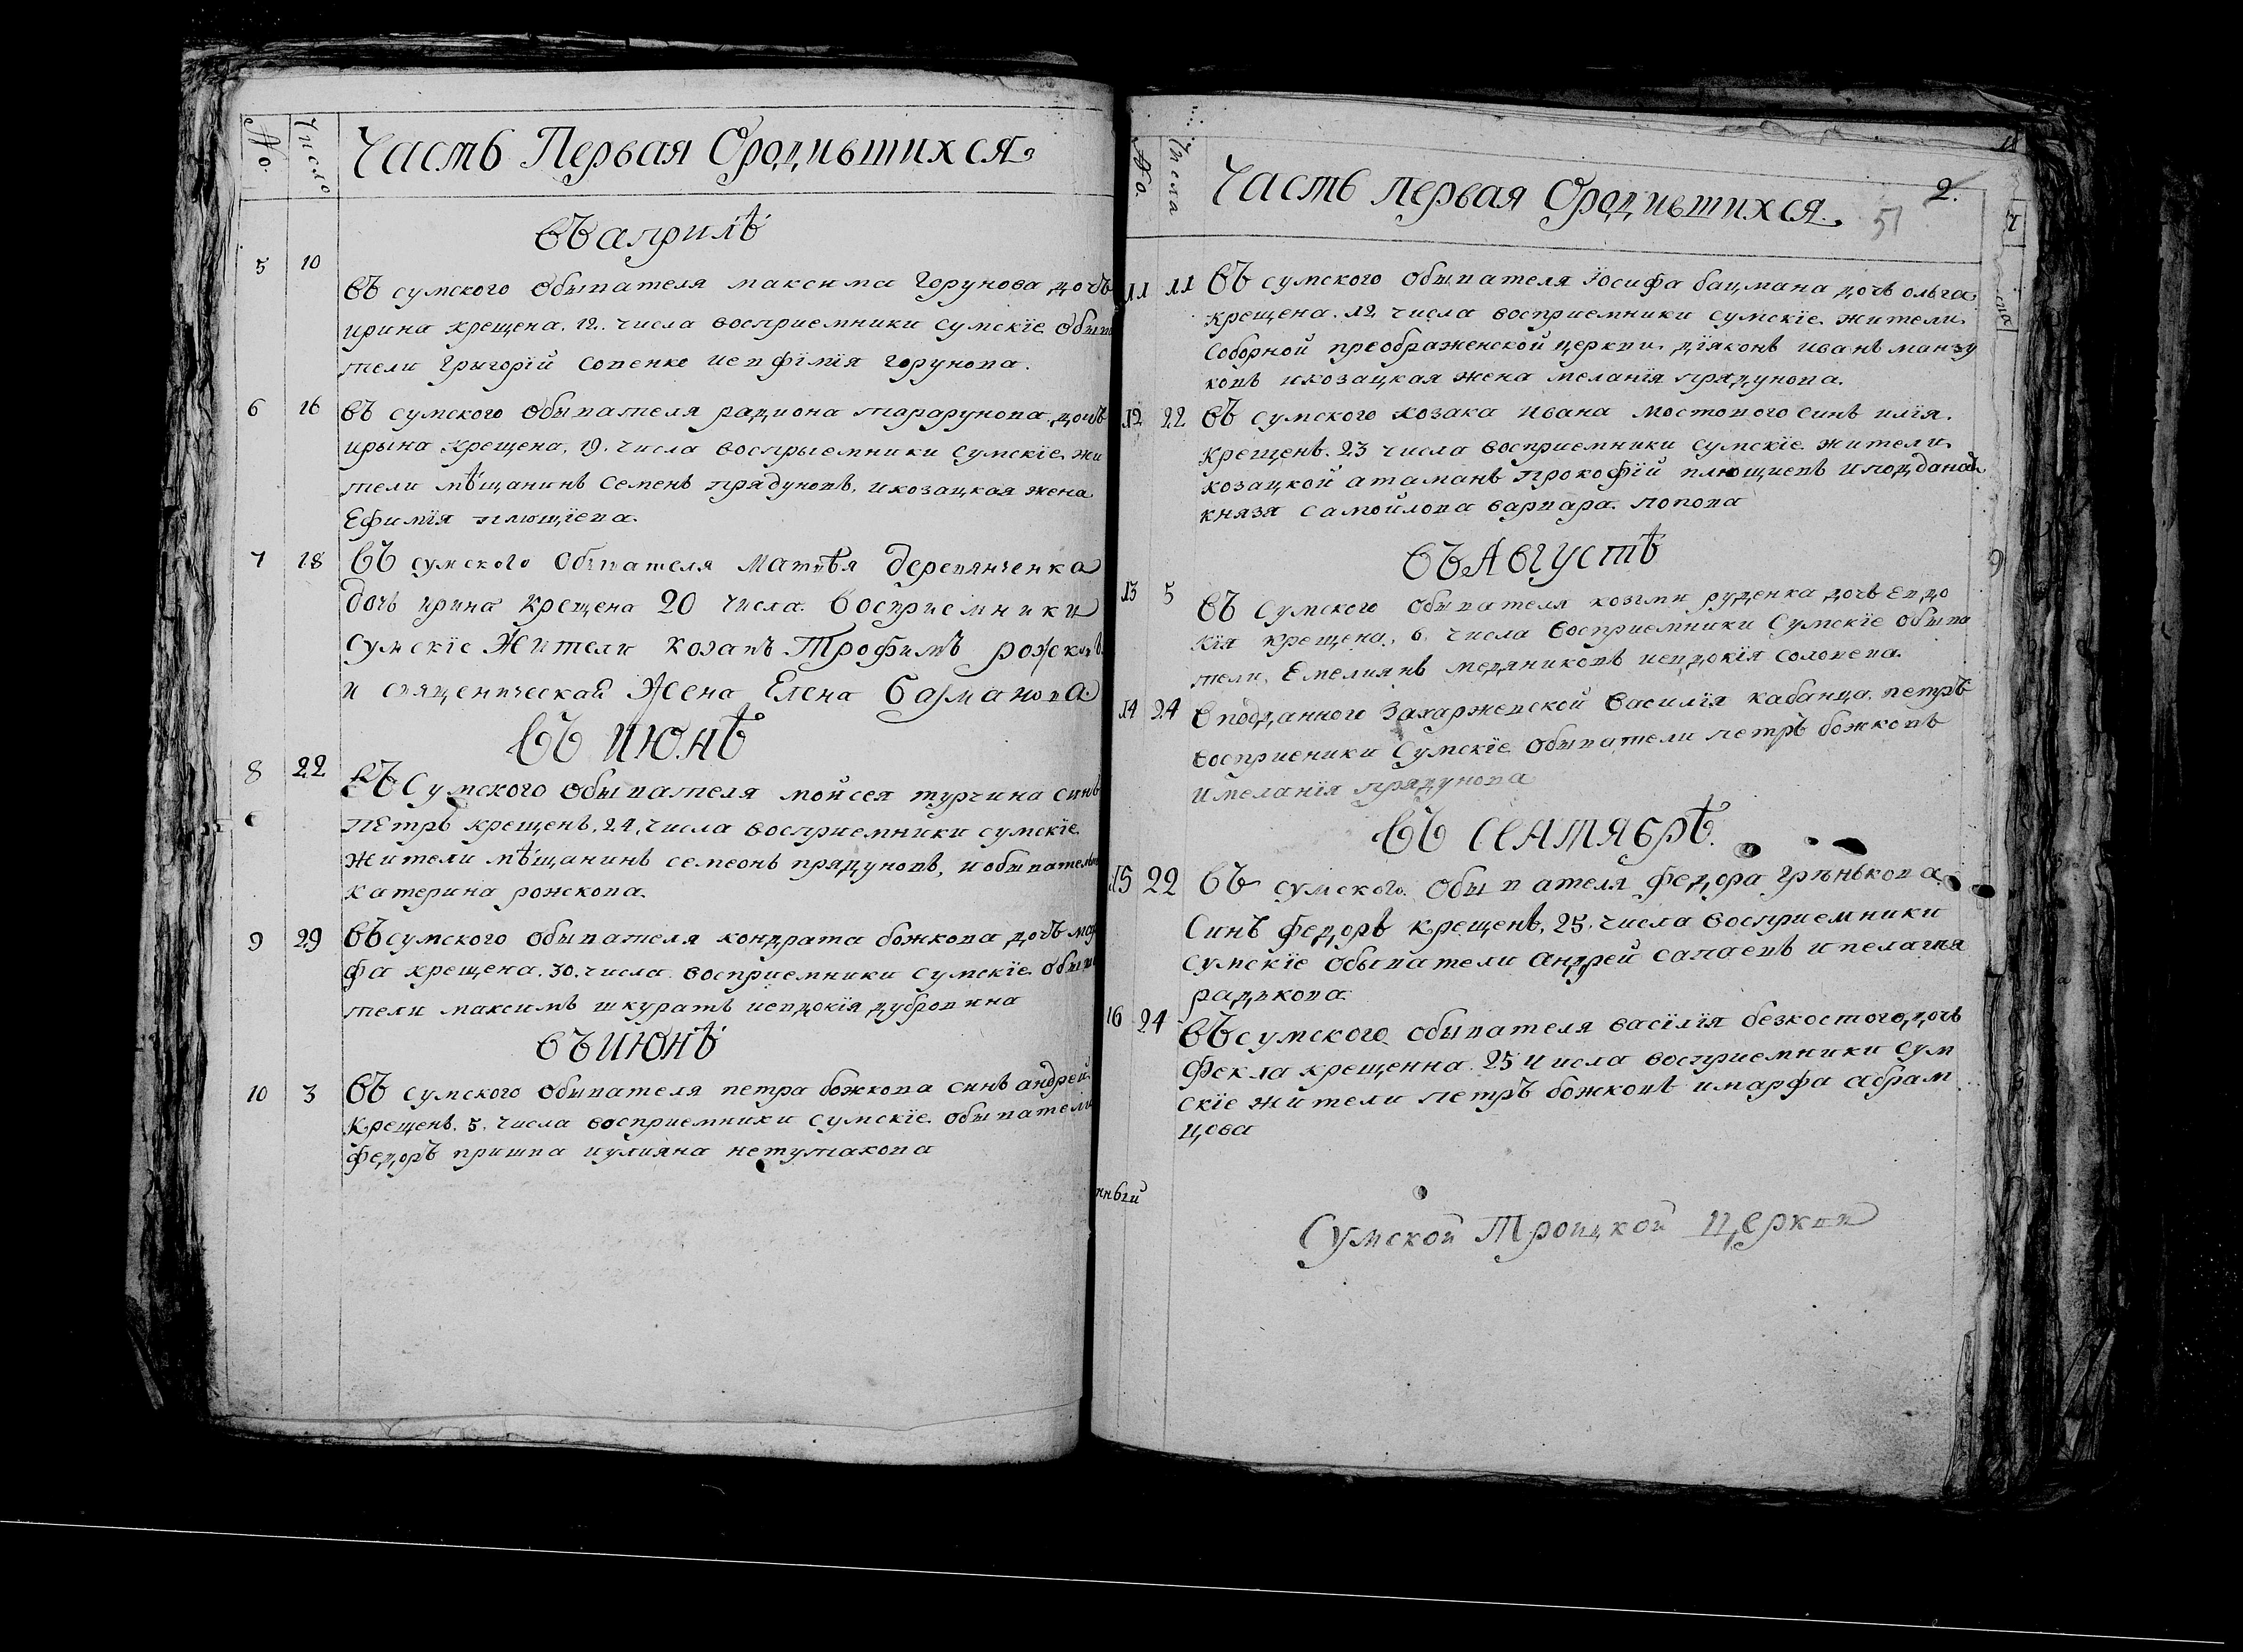 No. Число Часть Первая Ородившихся
Въ априлѣ
5 10 Въ сумского обывателя максима Горунова дочь
ирина крещена. 12. числа восприемники сумскіе обыва
тели Грыгорій Сопенко иевфімія горунова.
6 16 Въ сумского обывателя радиона тарарунова дочь
ирына крещена, 19. числа воспрыемники сумскіе жи
тели мѣщанинъ Семенъ прядуновъ, икозацкая жена
Ефимія плющіева.
7 18 Въ сумского обывателя Матвѣя Деревянченка
дочь ирина крещена 20 числа. восприемники
сумскіе Жители козакъ Трофимъ рожковъ
и священическая Жена Елена Базманова
Въ июнѣ
8 22 Въ Сумского обывателя мойсея турчина синъ
Петръ крещенъ. 24. числа восприемники сумскіе
Жители мѣщанинъ семеонъ прядуновъ, иобыватель
катерина рожкова.
9 29 Въ сумского обывателя кондрата божкова дочь мар
фа крещена. 30. числа восприемники сумскіе обыва
тели максимъ шкуратъ иевдокія дубровина
Въ июнѣ
10 3 Въ сумского обывателя петра божкова синъ андрей
Крещенъ. 5. числа восприемники сумскіе обыватели
федоръ пришва иулияна нетутакова
No. Числа Часть первая Ородившихся. 2.
51
11 11 Въ сумского обывателя Іосифа бацмана дочь ольга
крещена. 12 числа восприемники сумскіе жители
Соборной преображенской церкви діяконъ иванъ манзу
ковъ икозацкая жена меланія прядунова.
12 22 Въ сумского козака ивана мостового синъ илія.
Крещенъ. 23 числа восприемники сумскіе жители
козацкой атаманъ Прокофій плющиевъ иподданая
князя самойлова варвара попова
Въ Августѣ
13 5 Въ Сумского обывателя козми руденка дочь евдо
кія крещена. 6. числа восприемники Сумскіе обыва
тели, Емелиянъ медяниковъ иевдокія соловева.
14 24 Вподданного Захаржевской василія кабанца петръ
восприеники сумскіе обыватели петръ божковъ
имеланія прядунова
Въ Сентябрѣ.
15 22 Въ сумского обывателя федора Гринькова
Синъ федоръ крещенъ. 25. числа восприемники
сумскіе обыватели андрей сапаевъ ипелагия
радькова
16 24 Въ сумского обывателя василія безкостого дочь
Фекла крещенна. 25 числа восприемники сум
скіе жители петръ божковъ имарфа абрам
цова
нный
Сумской Троицкой Церкви